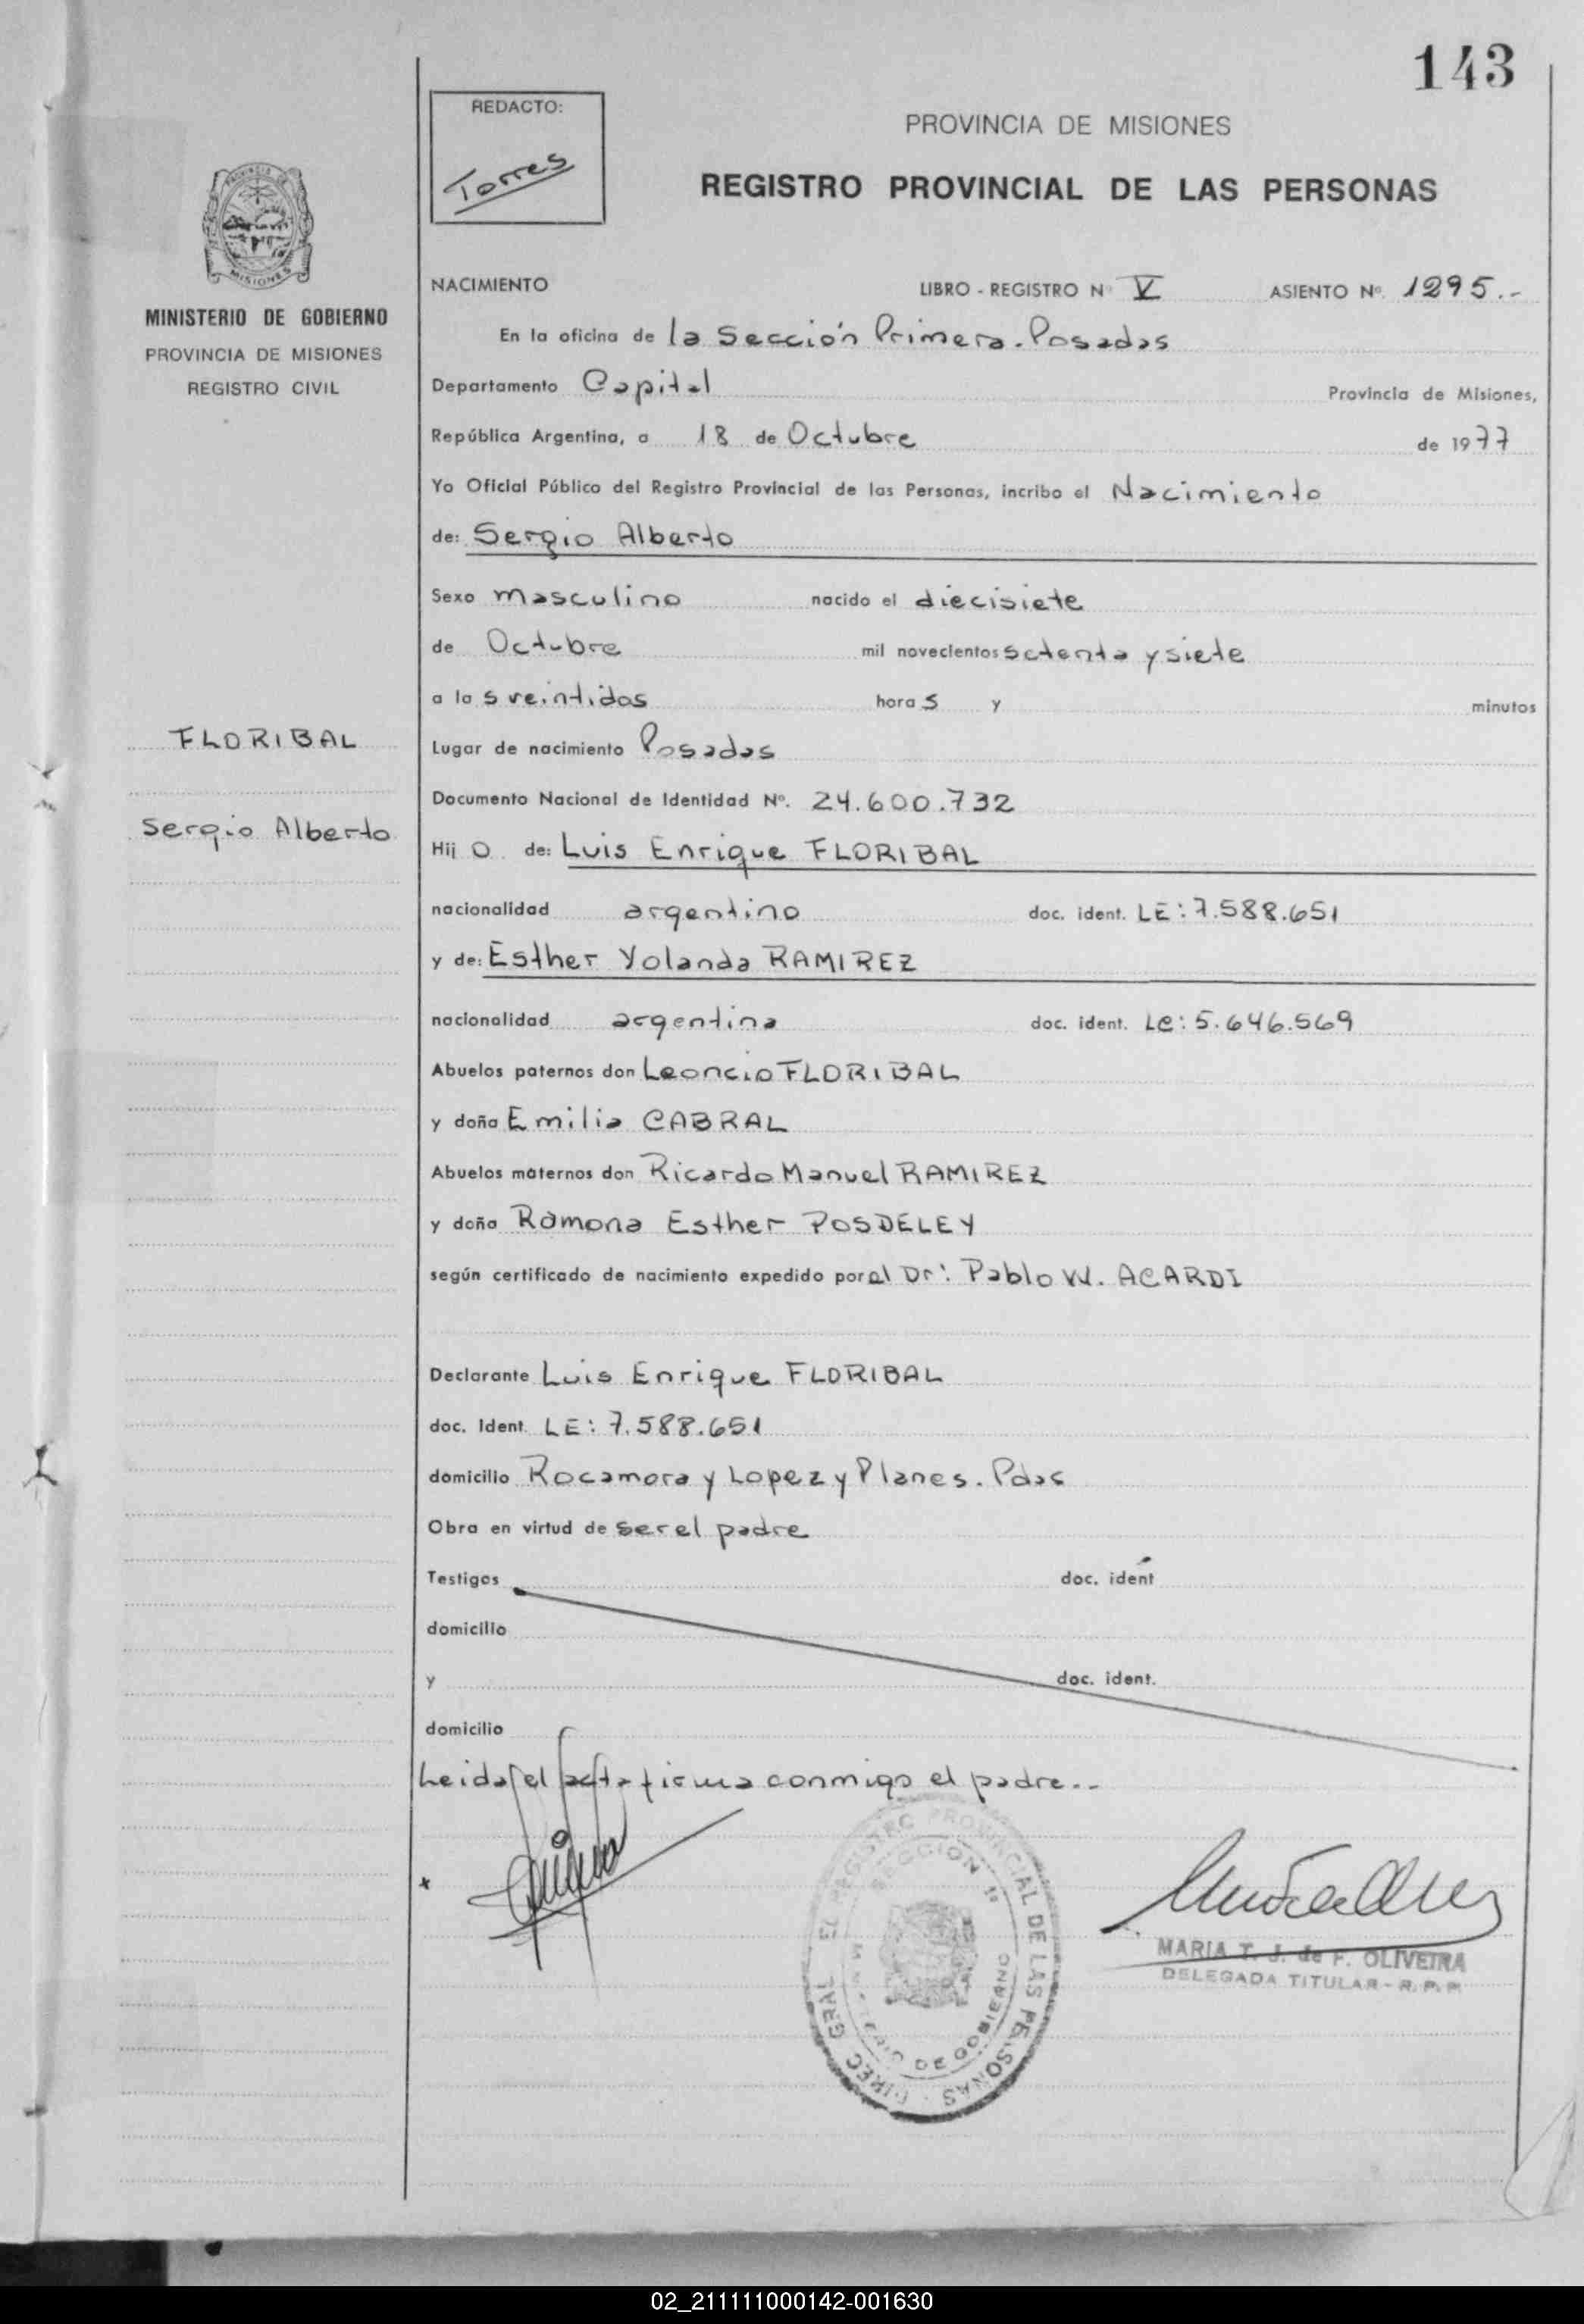 143
REDACTO:
Torres
PROVINCIA DE MISIONES
REGISTRO PROVINCIAL DE LAS PERSONAS
MISIONES
MINISTERIO DE GOBIERNO
PROVINCIA DE MISIONES
REGISTRO CIVIL
NACIMIENTO LIBRO - REGISTRO Nº V ASIENTO Nº 1295.-
En la oficina de la Sección Primera. Posadas
Departamento Capital Provincia de Misiones,
República Argentina, a 18 de Octubre de 1977
Yo Oficial Público del Registro Provincial de las Personas, incribo el Nacimiento
de: Sergio Alberto
Sexo masculino nacido el diecisiete
de Octubre mil novecientos setenta y siete
a las veintidos horas y minutos
FLORIBAL
Sergio Alberto
Lugar de nacimiento Posadas
Documento Nacional de Identidad Nº. 24.600.732
Hijo de: Luis Enrique FLORIBAL
nacionalidad argentino doc. ident. LE: 7.588.651
y de: Esther Yolanda RAMIREZ
nacionalidad argentina doc. ident. Le: 5.646.569
Abuelos paternos don Leoncio FLORIBAL
y doña Emilia CABRAL
Abuelos maternos don Ricardo Manuel RAMIREZ
y doña Ramona Esther POSDELEY
según certificado de nacimiento expedido por el Dr: Pablo W. ACARDI
Declarante Luis Enrique FLORIBAL
doc. Ident. LE: 7.588.651
domicilio Rocamora y Lopez y Planes. Pdas
Obra en virtud de ser el padre
Testigos doc. ident
domicilio
y doc. ident.
domicilio
Leida el acta firma conmigo el padre..
DIREC GRAL EL REGISTRO PROVINCIAL DE LAS PERSONAS
SECCION 1ª
MINISTERIO DE GOBIERNO
MARIA T. J. de F. OLIVEIRA
DELEGADA TITULAR - R. P. P.
02_211111000142-001630